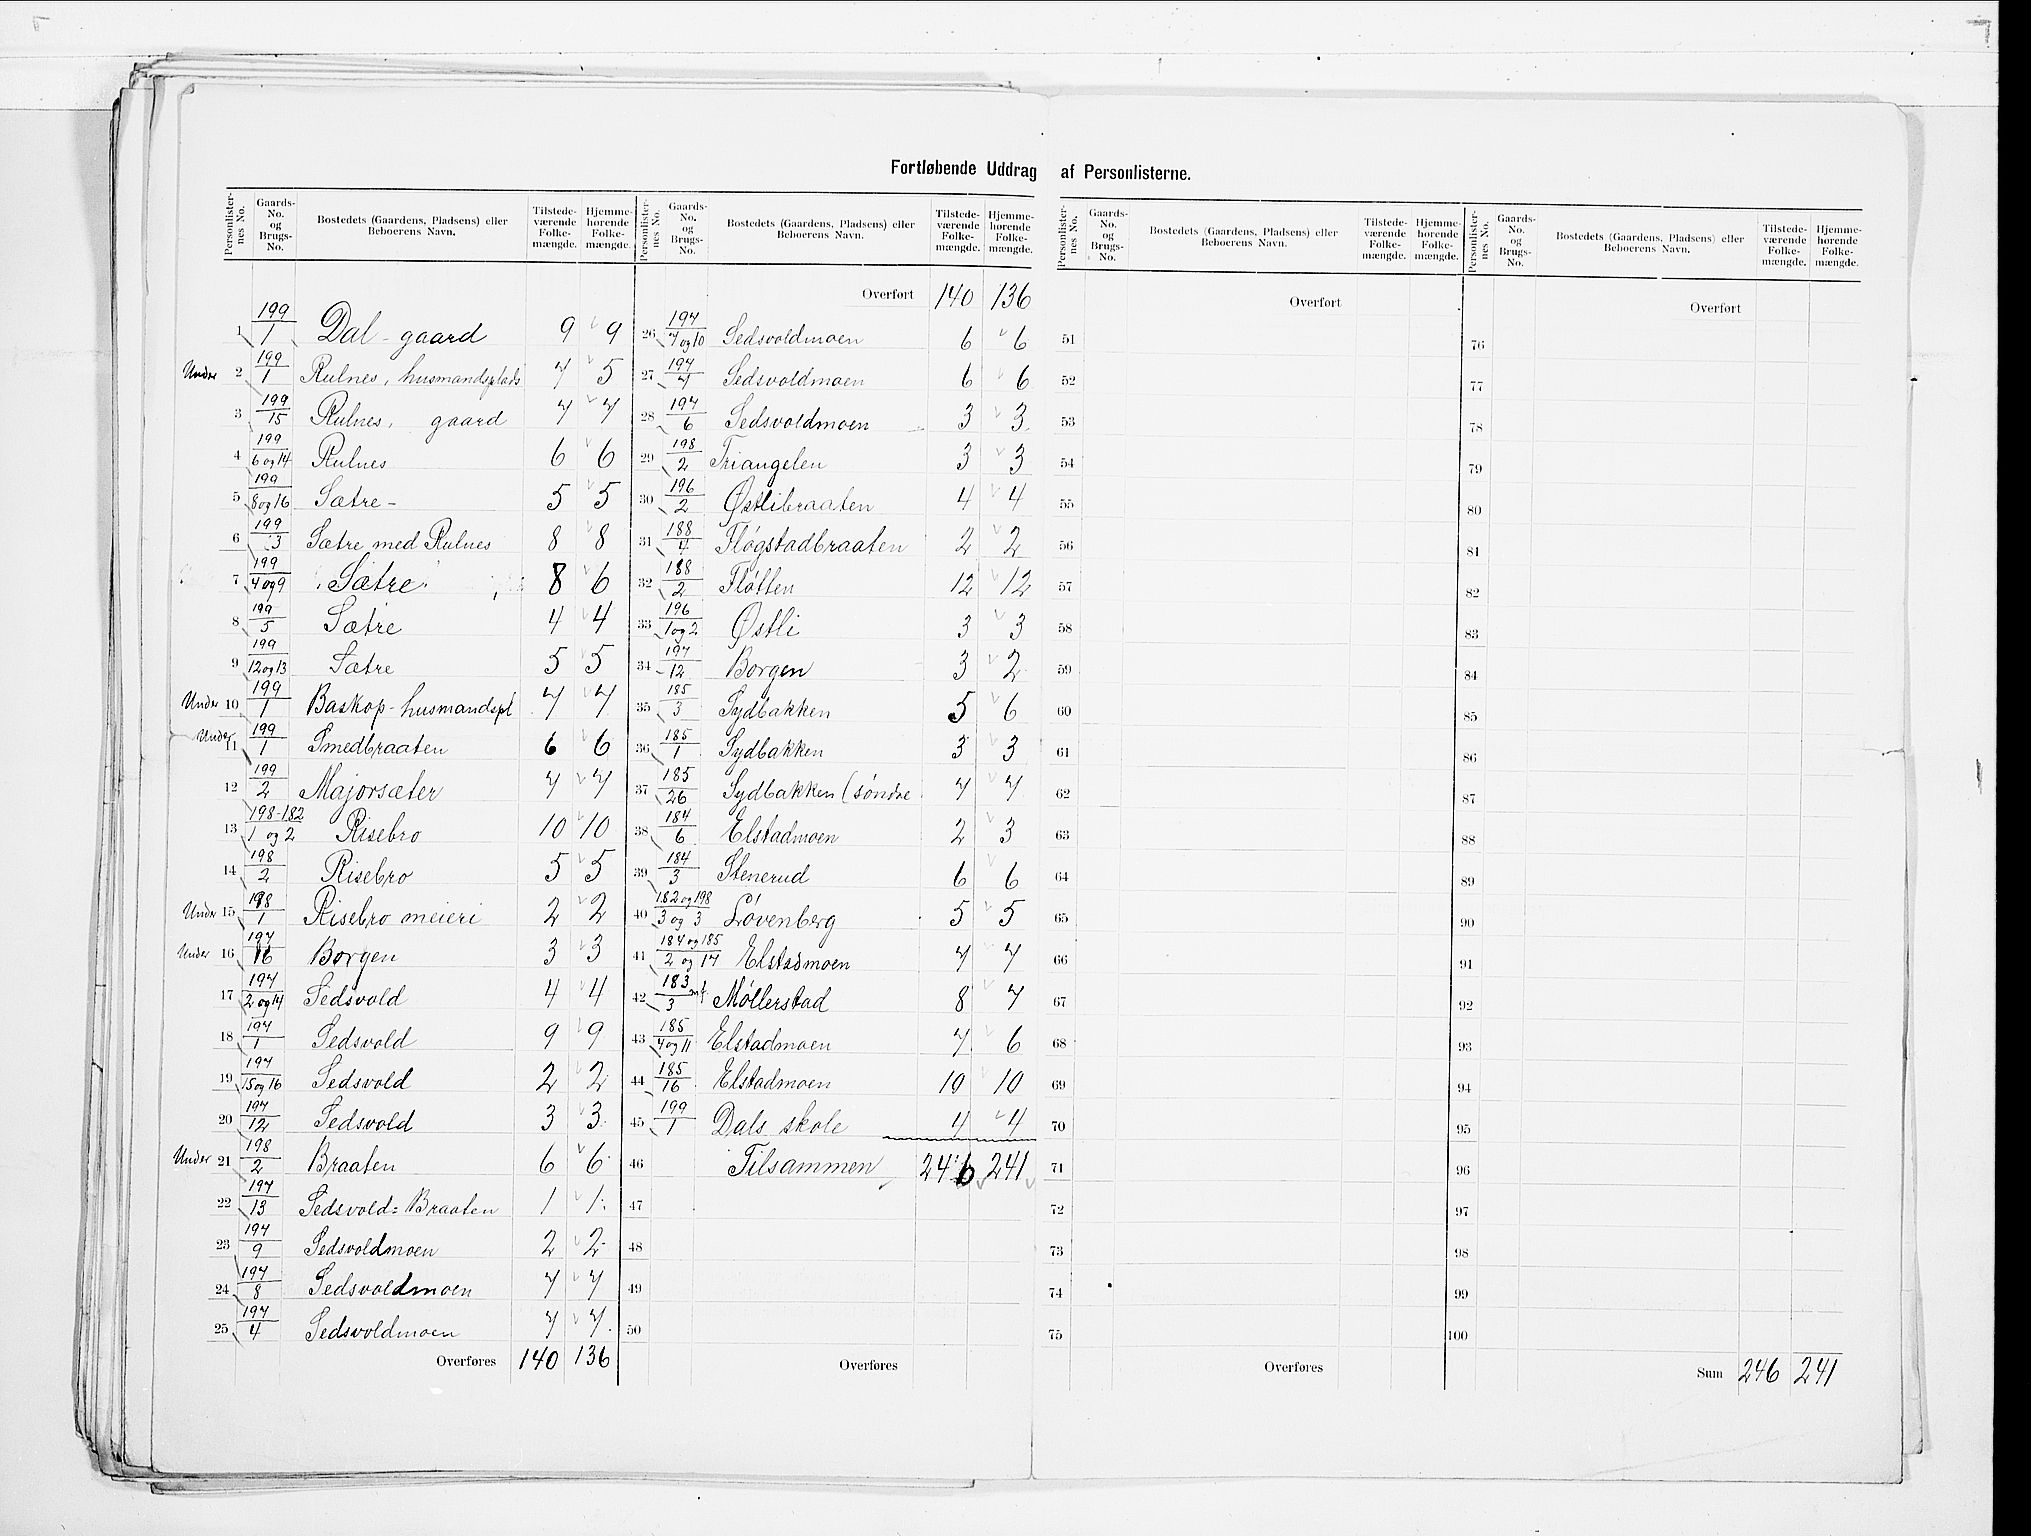 Fortløbende Uddrag af Personlisterne.
Personlister-nes No. | Gaards-No. og Brugs-No. | Bostedets (Gaardens, Pladsens) eller Beboerens Navn. | Tilstede-værende Folke-mængde. | Hjemme-hørende Folke-mængde.
1 199/1 Dal - gaard 9 9
Under 2 199/1 Rulnes, husmandsplads 7 5
3 199/15 Rulnes, gaard 7 7
4 199/6 og 14 Rulnes 6 6
5 199/8 og 16 Sætre - 5 5
6 199/3 Sætre med Rulnes 8 8
7 199/4 og 9 Sætre 8 6
8 199/5 Sætre 4 4
9 199/12 og 13 Sætre 5 5
Under 10 199/1 Baskop - husmandspl 7 7
Under 11 199/1 Smedbraaten 6 6
12 199/2 Majorsæter 7 7
13 198-182/1 og 2 Risebro 10 10
14 198/2 Risebro 5 5
Under 15 198/1 Risebro meieri 2 2
Under 16 197/16 Borgen 3 3
17 197/2 og 14 Sedsvold 4 4
18 197/1 Sedsvold 9 9
19 197/15 og 16 Sedsvold 2 2
20 197/12 Sedsvold 3 3
Under 21 198/2 Braaten 6 6
22 197/13 Sedsvold = Braaten 1 1
23 197/9 Sedsvoldmoen 2 2
24 197/8 Sedsvoldmoen 7 7
25 197/4 Sedsvoldmoen 7 7
Overføres 140 136
Personlister-nes No. | Gaards-No. og Brugs-No. | Bostedets (Gaardens, Pladsens) eller Beboerens Navn. | Tilstede-værende Folke-mængde. | Hjemme-hørende Folke-mængde.
Overført 140 136
26 197/7 og 10 Sedsvoldmoen 6 6
27 197/7 Sedsvoldmoen 6 6
28 197/6 Sedsvoldmoen 3 3
29 198/2 Triangelen 3 3
30 196/2 Østlibraaten 4 4
31 188/4 Fløgstadbraaten 2 2
32 188/2 Fløtten 12 12
33 196/1 og 2 Østli 3 3
34 197/12 Borgen 3 2
35 185/3 Sydbakken 5 6
36 185/1 Sydbakken 3 3
37 185/26 Sydbakken (søndre 7 7
38 184/6 Elstadmoen 2 3
39 184/3 Stenerud 6 6
40 182 og 198/3 og 3 Løvenberg 5 5
41 184 og 185/2 og 17 Elstadmoen 7 7
42 183/3 Møllerstad 8 7
43 185/4 og 11 Elstadmoen 7 6
44 185/16 Elstadmoen 10 10
45 199/1 Dals skole 4 4
46 Tilsammen 246 241
47
48
49
50
Overføres
Personlister-nes No. | Gaards-No. og Brugs-No. | Bostedets (Gaardens, Pladsens) eller Beboerens Navn. | Tilstede-værende Folke-mængde. | Hjemme-hørende Folke-mængde.
Overført
51
52
53
54
55
56
57
58
59
60
61
62
63
64
65
66
67
68
69
70
71
72
73
74
75
Overføres
Personlister-nes No. | Gaards-No. og Brugs-No. | Bostedets (Gaardens, Pladsens) eller Beboerens Navn. | Tilstede-værende Folke-mængde. | Hjemme-hørende Folke-mængde.
Overført
76
77
78
79
80
81
82
83
84
85
86
87
88
89
90
91
92
93
94
95
96
97
98
99
100
Sum 246 241